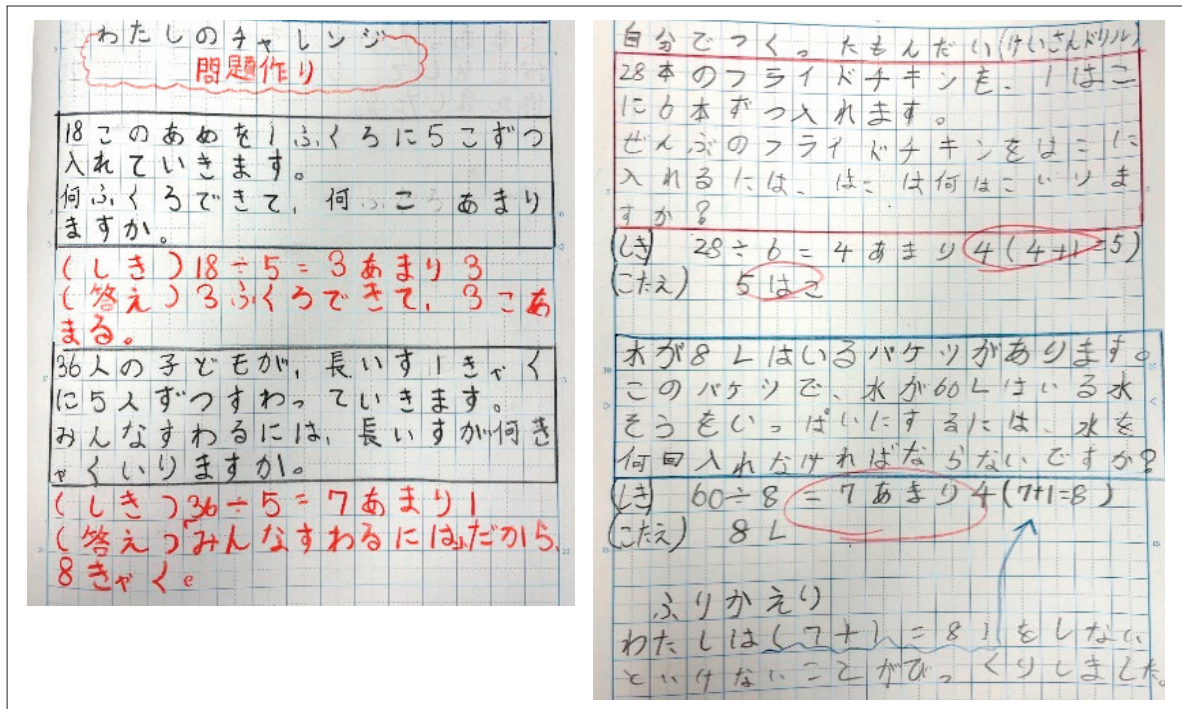 わたしのチャレンジ
問題作り
18このあめを1ふくろに5こずつ
入れていきます。
何ふくろできて、何こあまり
ますか。
(しき)18÷5=3あまり3
(答え)3ふくろできて、3こあ
まる。
36人の子どもが、長いす1きゃく
に5人ずつすわっていきます。
みんなすわるには、長いすが何き
ゃくいりますか。
(しき)36÷5=7あまり1
(答え)「みんなすわるには」だから、
8きゃく。
自分でつくったもんだい(けいさんドリル)
28本のフライドチキンを、1はこ
に6本ずつ入れます。
ぜんぶのフライドチキンをはこに
入れるには、はこは何はこいりま
すか?
(しき) 28÷6=4あまり4(4+1=5)
(こたえ) 5はこ
水が8Lはいるバケツがあります。
このバケツで、水が60Lはいる水
そうをいっぱいにするには、水を
何回入れなければならないですか?
(しき) 60÷8=7あまり4(7+1=8)
(こたえ) 8L
ふりかえり
わたしは(7+1=8)をしない
といけないことがびっくりしました。